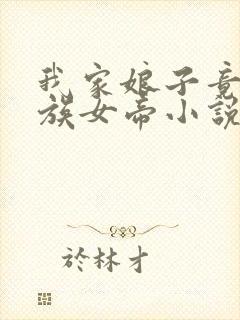 我家娘子竟
族女帝小說
於林才